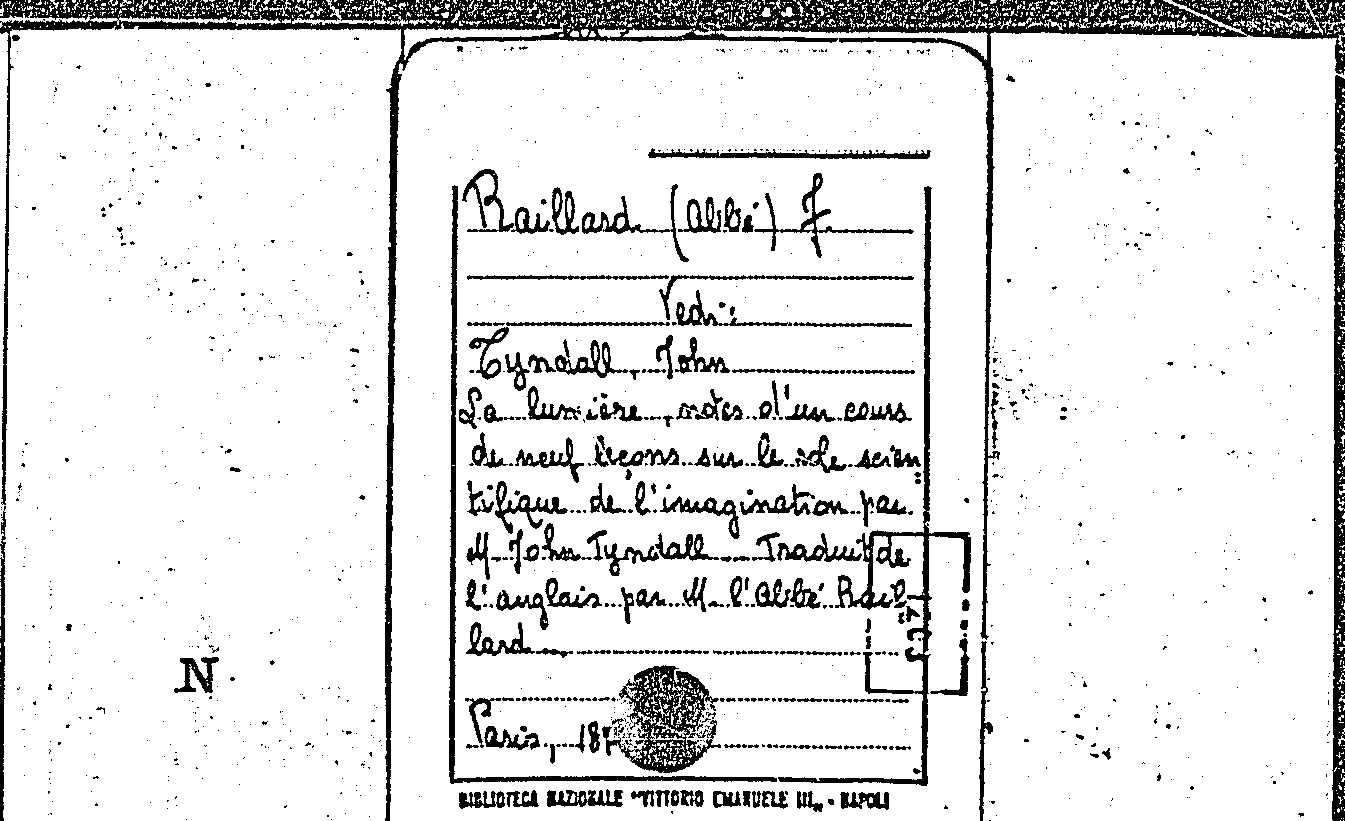 Raillard (Abbé) J.
Vedi:
Tyndall, John
La lumière, notes d'un cours
de neuf leçons sur le role scien
tifique de l'imagination par
M. John Tyndall Traduit de
l'anglais par M. l'Abbé Rail-
lard...
Paris, 187
N
BIBLIOTECA NAZIONALE "VITTORIO EMANUELE III" - NAPOLI